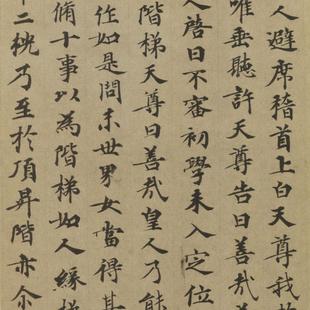 人避席稽首上白天尊我
唯垂聽許天尊告曰善哉善
人啓曰不審初學未入定位
階梯天尊曰善哉皇人乃能
作如是問末世男女當得其
脩十事以為階梯如人緣梯
十二桄乃至於頂昇階亦尒